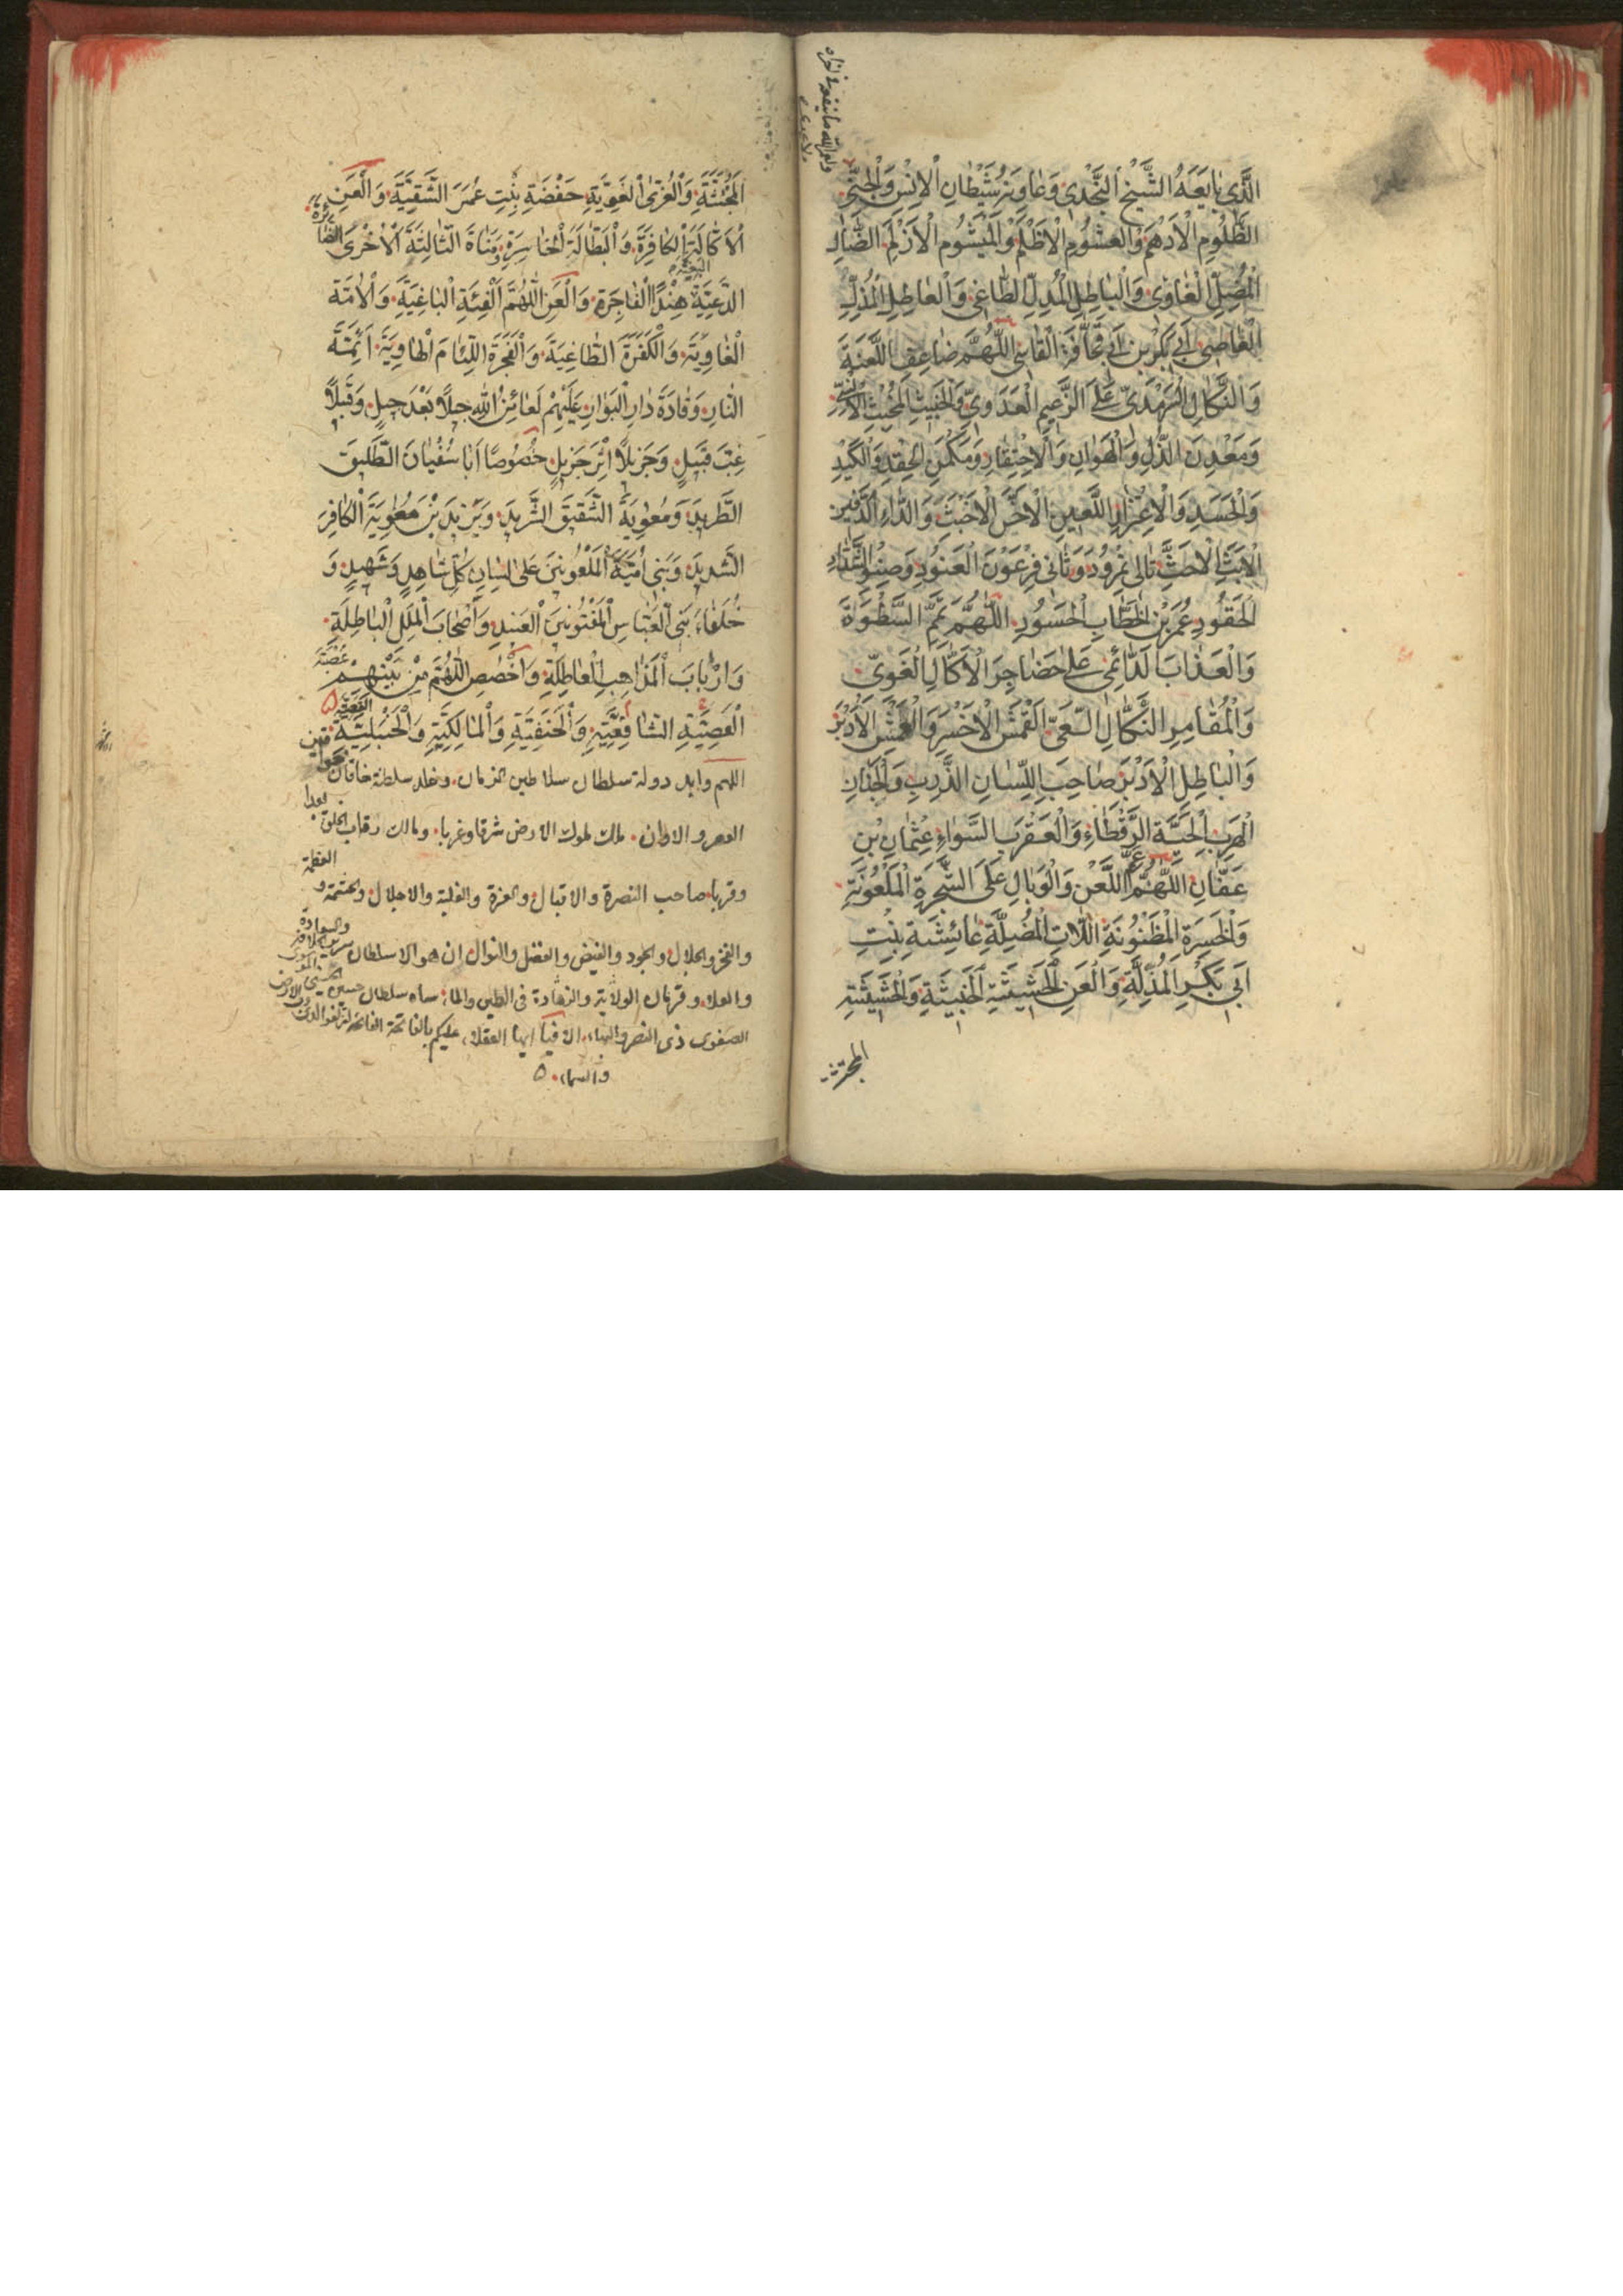 الَّذِي بَايَعَهُ الشَّيْخُ النَّجْدِي وَعَاوَنَهُ شَيْطَانِ الْاِنْسِ وَالْجِنِّي
الظَّلُومِ الْاَدْهَمِ وَالْغَشُومِ الْاَظْلَمِ وَالْمَيْشُومِ الْاَزْلَمِ الضَّالِّ
الْمُضِلِّ الْغَاوِي وَالْبَاطِلِ الْمُدِلِّ الطَّاغِي وَالْعَاطِلِ الْمُذِلِّ
الْعَاصِي اَبِي بَكْرِ بْنِ اَبِي قُحَافَةَ الْقَاسِي اَللّٰهُمَّ ضَاعِفِ اللَّعْنَةَ
وَالنَّكَالِ السَّرْمَدِيِّ عَلَى الزَّعِيمِ الْعَدَاوِيِّ وَالْخَبِيثِ الْمُخْبِثِ
وَمَعْدِنِ الذُّلِّ وَالْهَوَانِ وَالْاِحْتِقَارِ وَمَكْمَنِ الْحِقْدِ وَالْكَيْدِ
وَالْحَسَدِ وَالْاِغْتِرَارِ اللَّعِينِ الْاَخَسِّ الْاَخْبَثِ وَالدَّاءِ الدَّفِينِ
تَالِي نُمْرُودَ وَثَانِي فِرْعَوْنَ الْعَنُودِ وَصِنْوِ الشَّدَّادِ
الْحَقُودِ عُمَرَ بْنِ الْخَطَّابِ الْحَسُودِ اَللّٰهُمَّ عَمِّمِ السَّطْوَةَ
وَالْعَذَابَ الدَّائِمِي عَلَى حَضَاجِرَ الْاَكَّالِ الْغَوِيِّ
وَالْمُقَامِرِ النَّكَّالِ الْاَخْسَرِ
وَالْبَاطِلِ الْاَدْبَرِ صَاحِبِ اللِّسَانِ الذَّرِبِ وَالْجَنَانِ
الْهَرِبِ الْحَيَّةِ الرَّقْطَاءِ وَالْعَقْرَبِ السَّوَاءِ عُثْمَانِ بْنِ
عَفَّانِ اَللّٰهُمَّ عُمَّ اللَّعْنَ وَالْوَبَالِ عَلَى الشَّجَرَةِ الْمَلْعُونَةِ
وَالْخَسِرَةِ الْمَظْنُونَةِ اللَّاتِ الْمُضِلَّةِ عَائِشَةِ بِنْتِ
اَبِي بَكْرِ الْمُذِلَّةِ وَالْعَنِ الْحَشِيشَةِ الْخَبِيثَةِ
الْمُجْتَثَّةِ وَالْعُزَّى الْغَوِيَّةِ حَفْصَةِ بِنْتِ عُمَرَ الشَّقِيَّةِ وَالْعَنِ
الْاَكَّالَةِ الْكَافِرَةِ وَالْبَطَّالَةِ الْخَاسِرَةِ وَمَنَاةَ الثَّالِثَةِ الْاُخْرَى
الدَّعِيَّةِ هِنْدًا الْفَاجِرَةِ وَالْعَنِ اللّٰهُمَّ الْفِئَةِ الْبَاغِيَةِ وَالْاُمَّةِ
الْغَاوِيَةِ وَالْكَفَرَةَ الطَّاغِيَةَ وَالْفَجَرَةَ اللِّئَامَ الْهَاوِيَةَ اَئِمَّةَ
النَّارِ وَقَادَةَ دَارِ الْبَوَارِ عَلَيْهِمْ لَعَائِنُ اللّٰهِ جِيلًا بَعْدَ جِيلٍ وَقَبِيلًا
غِبَّ قَبِيلٍ وَجَزِيلًا اِثْرَ جَزِيلٍ خُصُوصًا اَبَا سُفْيَانَ الطَّلِيقَ
الطَّرِيدَ وَمُعٰوِيَةَ الشَّقِيقَ الشَّرِيدَ وَيَزِيدَ بْنَ مُعٰوِيَةَ الْكَافِرَ
الشَّدِيدَ وَبَنِي اُمَيَّةَ الْمَلْعُونِينَ عَلَى لِسَانِ كُلِّ شَاهِدٍ وَشَهِيدٍ وَ
خُلَفَاءَ بَنِي الْعَبَّاسِ الْمَفْتُونِينَ الْعَنِيدِ وَاَصْحَابَ الْمِلَلِ الْبَاطِلَةِ
وَاَرْبَابَ الْمَذَاهِبِ الْعَاطِلَةِ وَاخْصُصِ اللّٰهُمَّ مِنْ بَيْنِهِمْ
الْعَصِيَّةِ الشَّافِعِيَّةِ وَالْحَنَفِيَّةِ وَالْمَالِكِيَّةِ وَالْحَنْبَلِيَّةِ
اللهم وايد دولة سلطان سلاطين الزمان وخلد سلطنة خاقان
العصر والاوان ملك ملوك الارض شرقا وغربا ومالك رقاب الخلق بعدا
وقربا صاحب النصرة والاقبال والعزة والغلبة والاجلال والحشمة و العظمة
والفخر والجلال والجود والفيض والفضل والنوال ان هو الا سلطان
والعلاء وقهرمان الولاية والزهادة فى الطين والماء شاه سلطان حسين
الصفوى ذى النصر والبهاء الا فيا ايها العقلاء عليكم بالفاتحة الفاتحة
والسماء